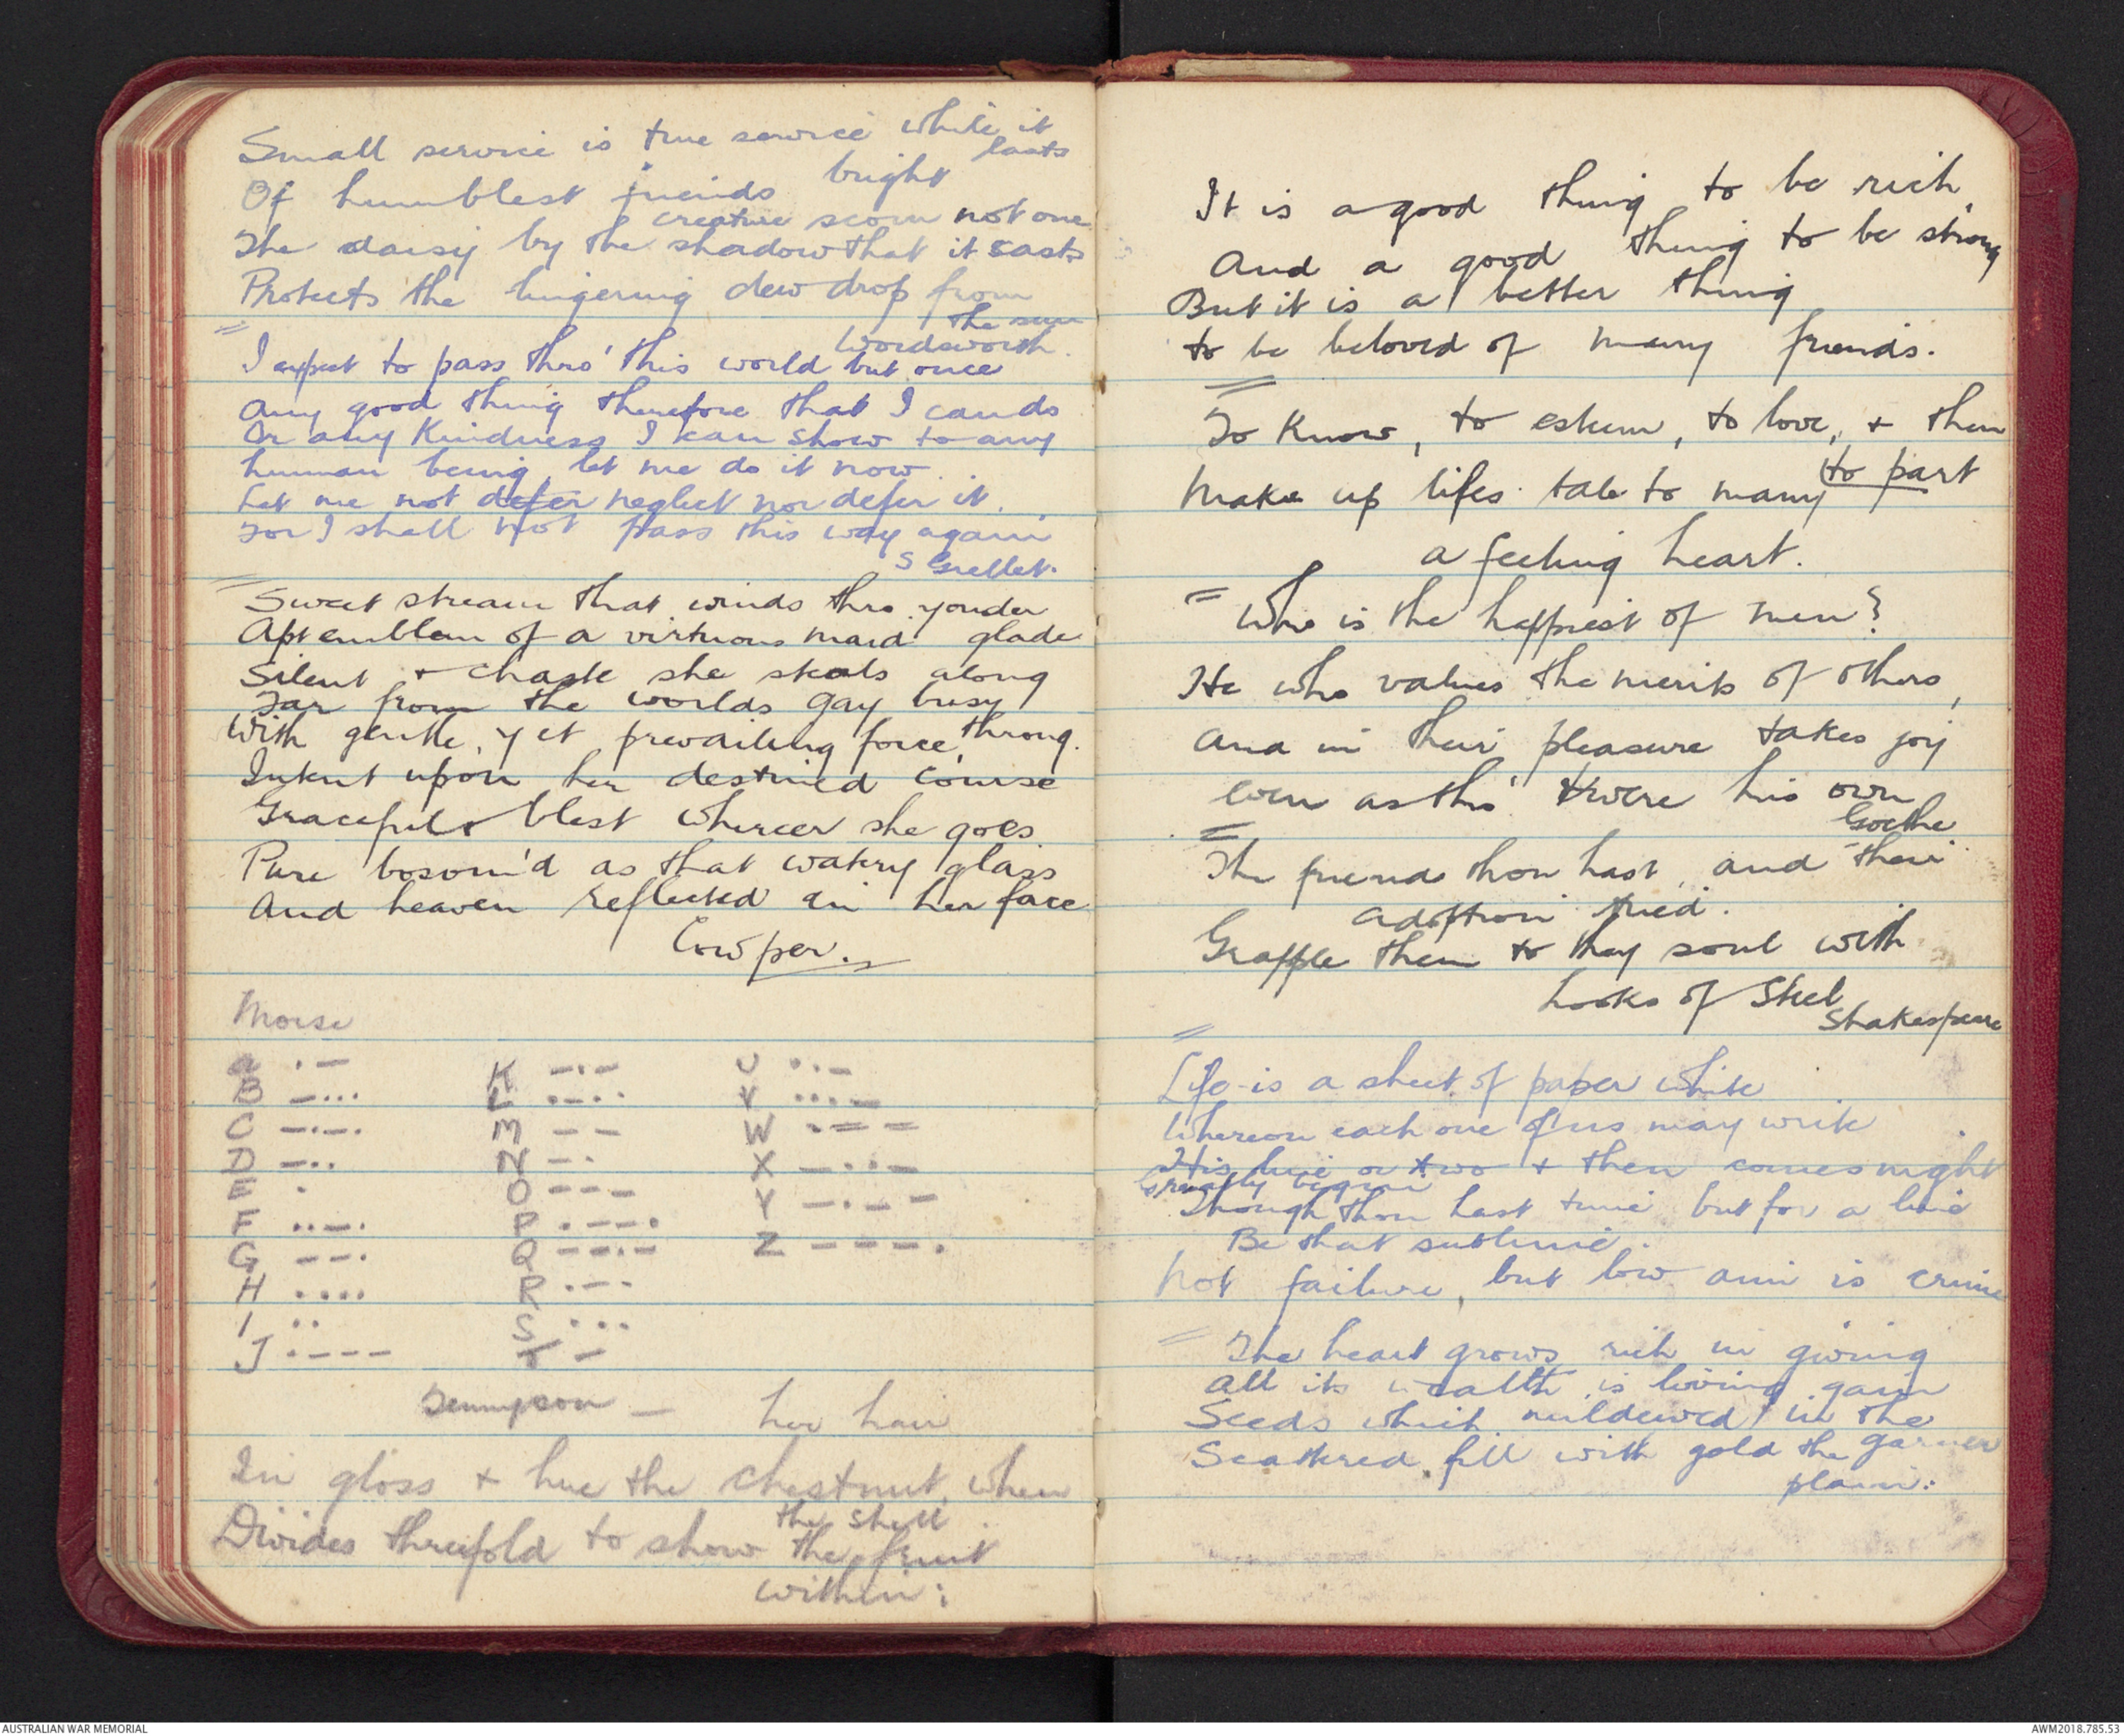 Small service is true service while it
lasts
Of humblest friends bright
creature scorn not one
The daisy by the shadow that it casts
Protects the lingering dew drop from
the sun
Wordsworth.
I expect to pass thro' this world but once
Any good thing therefore that I can do
Or any Kindness I can show to any
human being, let me do it now.
Let me not defer neglect nor defer it.
For I shall not pass this way again
S Grellet.
Sweet stream that winds thro yonder
glade
Apt emblem of a virtuous maid
Silent + chaste she steals along
Far from the worlds gay busy
throng.
With gentle, yet prevailing force,
Intent upon her destined course
Graceful + blest whereer she goes
Pure bosom'd as that watery glass
And heaven reflected in her face
Cowper.
Morse
a .- K -.- U ..-
B -... L .-.. V ...-
C -.-. M -- W .--
D -.. N -. X -..-
E . O --- Y -.--
F ..-. P .--. Z ---.
G --. Q --.-
H .... R .-.
I .. S ...
J .--- T -
Tennyson - her hair
In gloss + hue the chestnut, when
the shell
Divides threefold to show the fruit
within:
It is a good thing to be rich,
And a good thing to be strong
But it is a better thing
to be beloved of many friends.
To Know, to esteem, to love, + then
to part
Make up lifes tale to many
a feeling heart.
Who is the happiest of men?
He who values the merits of others,
And in their pleasure takes joy
even as tho' t'were his own
Goethe
The friends thou hast, and their
adoption tried.
Grapple them to thy soul with
hooks of Steel
Shakespeare
Life is a sheet of paper white
Whereon each one of us may write
His line or two + then comes night
Greatly begin
Though thou hast time but for a line
Be that sublime.
Not failure, but low aim is crime
The heart grows rich in giving
All its wealth is living gain
Seeds which mildewed in the
garner
Scattered fill with gold the
plain.
AUSTRALIAN WAR MEMORIAL
AWM2018.785.53